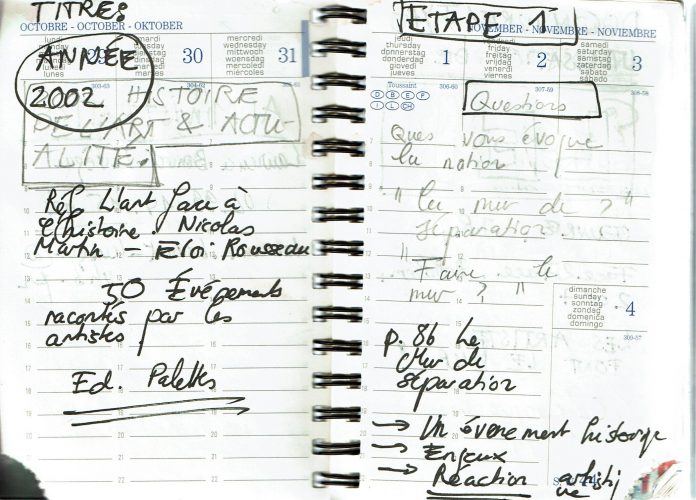 TITRES
OCTOBRE - OCTOBER - OKTOBER
lundi
lunes
mardi
tuesday
dienstag
dinsdag
martedì
martes
30
mercredi
wednesday
mittwoch
woensdag
mercoledì
miércoles
31
ANNÉE
2002 HISTOIRE
DE L'ART & ACTU-
ALITÉ.
Réf L'art face à
l'histoire. Nicolas
Martin - Eloi Rousseau
50 Événements
racontés par les
artistes
Ed. Palettes
ETAPE 1
NOVEMBER - NOVEMBRE - NOVIEMBRE
jeudi
thursday
donnerstag
donderdag
giovedì
jueves
1
friday
freitag
vrijdag
venerdì
viernes
2
samedi
saturday
samstag
zaterdag
sabato
sábado
3
Toussaint
D B E F
I L CH
306-60
307-59
308-58
Questions
Ques vous évoque
la notion
" Le mur de ? "
séparation.
" Faire le
mur ? "
dimanche
sunday
sonntag
zondag
domenica
domingo
4
309-57
p. 86 Le
Mur de
séparation
→ Un évènement historique
→ Enjeux
→ Réaction artistique